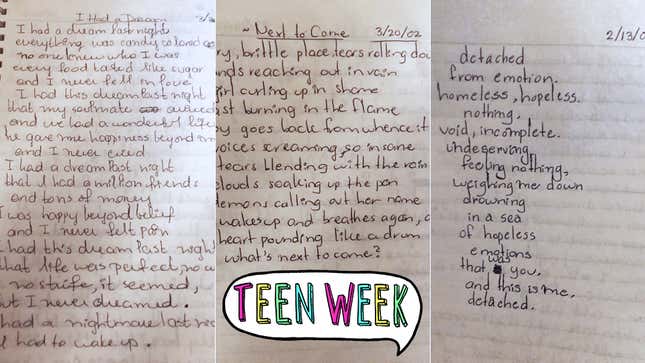 I Had a Dream
I had a dream last night
everything was candy coloed
no one knew who I was
every food tasted like sugar
and I never fell in love
I had this dream last night
that my soulmate
and we had a wonderful life
he gave me happiness beyond
and I never cried
I had a dream last night
that I had a million friends
and tons of money
I was happy beyond belief
and I never felt pain
had this dream last night
that life was perfect, no
no straife, it seemed,
but I never dreamed.
had a nightmare last
I had to wake up.
~ Next to Come 3/20/02
ry, brittle place, tears rolling dow
nds reaching out in vain
irl curling up in shame
st burning in the flame
y goes back from whence it
oices screaming, so insane
tears blending with the rain
clouds soaking up the pain
emons calling out her name
wakes up and breathes again, a
heart pounding like a drum
what's next to come?
TEEN WEEK
2/13/0
detached
from emotion.
homeless, hopeless.
nothing.
void, incomplete.
undeserving,
feeling nothing,
weighing me down
drowning
in a sea
of hopeless
emotions
that was you.
and this is me,
detached.